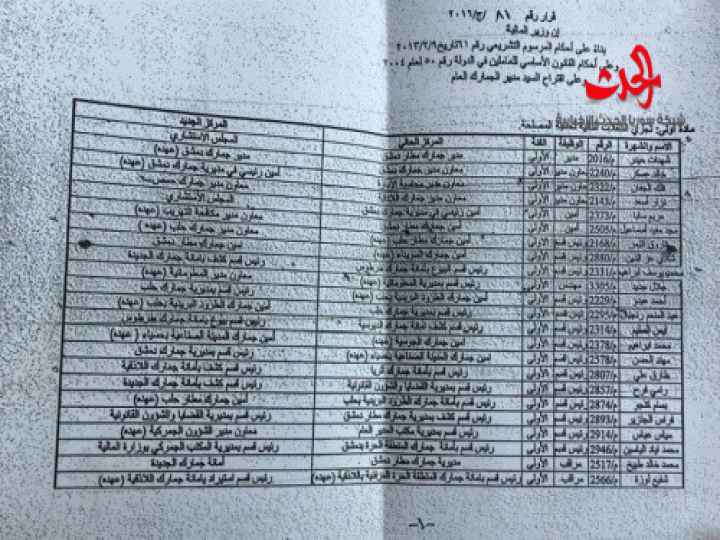 قرار رقم ٨١ /ج/٢٠١٦
إن وزير المالية
بناء على أحكام المرسوم التشريعي رقم ٦١ تاريخ ٢٠١٣/٢/٩
وعلى أحكام القانون الأساسي للعاملين في الدولة رقم ٥٠ لعام ٢٠٠٤
وعلى اقتراح السيد مدير الجمارك العام
الحدث
شبكة سوريا الحدث الإخبارية
مادة أولى: تجري التنقلات التالية المصلحة
الاسم والشهرة الرقم الوظيفة الفئة المركز الحالي المركز الجديد
شهيدات حيدر م/2016 مدير الأولى مدير جمارك مطار دمشق المجلس الاستشاري
خالد عسكر م/2240 معاون مدير الأولى أمين رئيسي في مديرية جمارك دمشق (عهده) مدير جمارك دمشق (عهده)
م/2322 معاون مدير الأولى معاون مدير جمارك
نزار أسعد م/2143 معاون مدير الأولى معاون مدير جمارك المجلس الاستشاري
مريم سابا م/2373 أمين الأولى أمين رئيسي في مديرية جمارك دمشق معاون مدير مكافحة التهريب (عهده)
محمد سعيد اسماعيل م/2505 أمين الأولى معاون مدير جمارك حلب (عهده)
فاروق م/2168 رئيس قسم الأولى أمين جمارك مطار حلب (عهده) أمين جمارك مطار دمشق
عز الدين م/2880 رئيس قسم الأولى أمين جمارك (عهده) رئيس قسم كشف بأمانة جمارك الجديدة
محمد يوسف ابراهيم م/2311 رئيس قسم الأولى رئيس قسم البيوع بأمانة جمارك طرطوس معاون مدير المعلوماتية (عهده)
جلال جديد م/3305 مهندس الأولى رئيس قسم بمديرية المعلوماتية (عهده) رئيس قسم بمديرية جمارك حلب
أحمد عيدو م/2229 رئيس قسم الأولى أمين جمارك الطرود البريدية بحلب أمين جمارك الطرود البريدية بحلب (عهده)
عبد المنعم م/2295 رئيس قسم الأولى رئيس قسم بمديرية جمارك حلب رئيس قسم بيوع بأمانة جمارك طرطوس
أيمن م/2314 رئيس قسم الأولى رئيس قسم كشف أمانة جمارك أمين جمارك المدينة الصناعية بحسياء (عهده)
محمد ابراهيم م/2378 رئيس قسم الأولى أمين جمارك (عهده) رئيس قسم بمديرية جمارك دمشق
مهند الحسن م/2578 رئيس قسم الأولى أمين جمارك المدينة الصناعية بحسياء (عهده) رئيس قسم كشف بأمانة جمارك اللاذقية
طارق علي م/2807 رئيس قسم الأولى رئيس قسم كشف بأمانة جمارك رئيس قسم كشف بأمانة جمارك الجديدة
رامي فرح م/2857 رئيس قسم الأولى رئيس قسم بمديرية القضايا والشؤون القانونية أمين جمارك مطار حلب (عهده)
بسام م/2874 رئيس قسم الأولى رئيس قسم بأمانة جمارك الطرود البريدية بحلب رئيس قسم بمديرية القضايا والشؤون القانونية
فراس الجزايري م/2893 رئيس قسم الأولى رئيس قسم كشف بأمانة جمارك مطار دمشق معاون مدير الشؤون الجمركية (عهده)
عباس م/2914 رئيس قسم الأولى رئيس قسم بمديرية مكتب المدير العام رئيس قسم بمديرية المكتب الجمركي بوزارة المالية
محمد اياد الياسين م/2946 رئيس قسم الأولى رئيس قسم بأمانة جمارك المنطقة الحرة بدمشق
محمد خالد طبيخ م/2517 مراقب الأولى مديرية جمارك مطار دمشق أمانة جمارك الجديدة
شفيع لوزة م/2566 مراقب الأولى رئيس قسم بأمانة جمارك المنطقة الحرة المرفئية باللاذقية (عهده) رئيس قسم استيراد بأمانة جمارك اللاذقية (عهده)
-١-